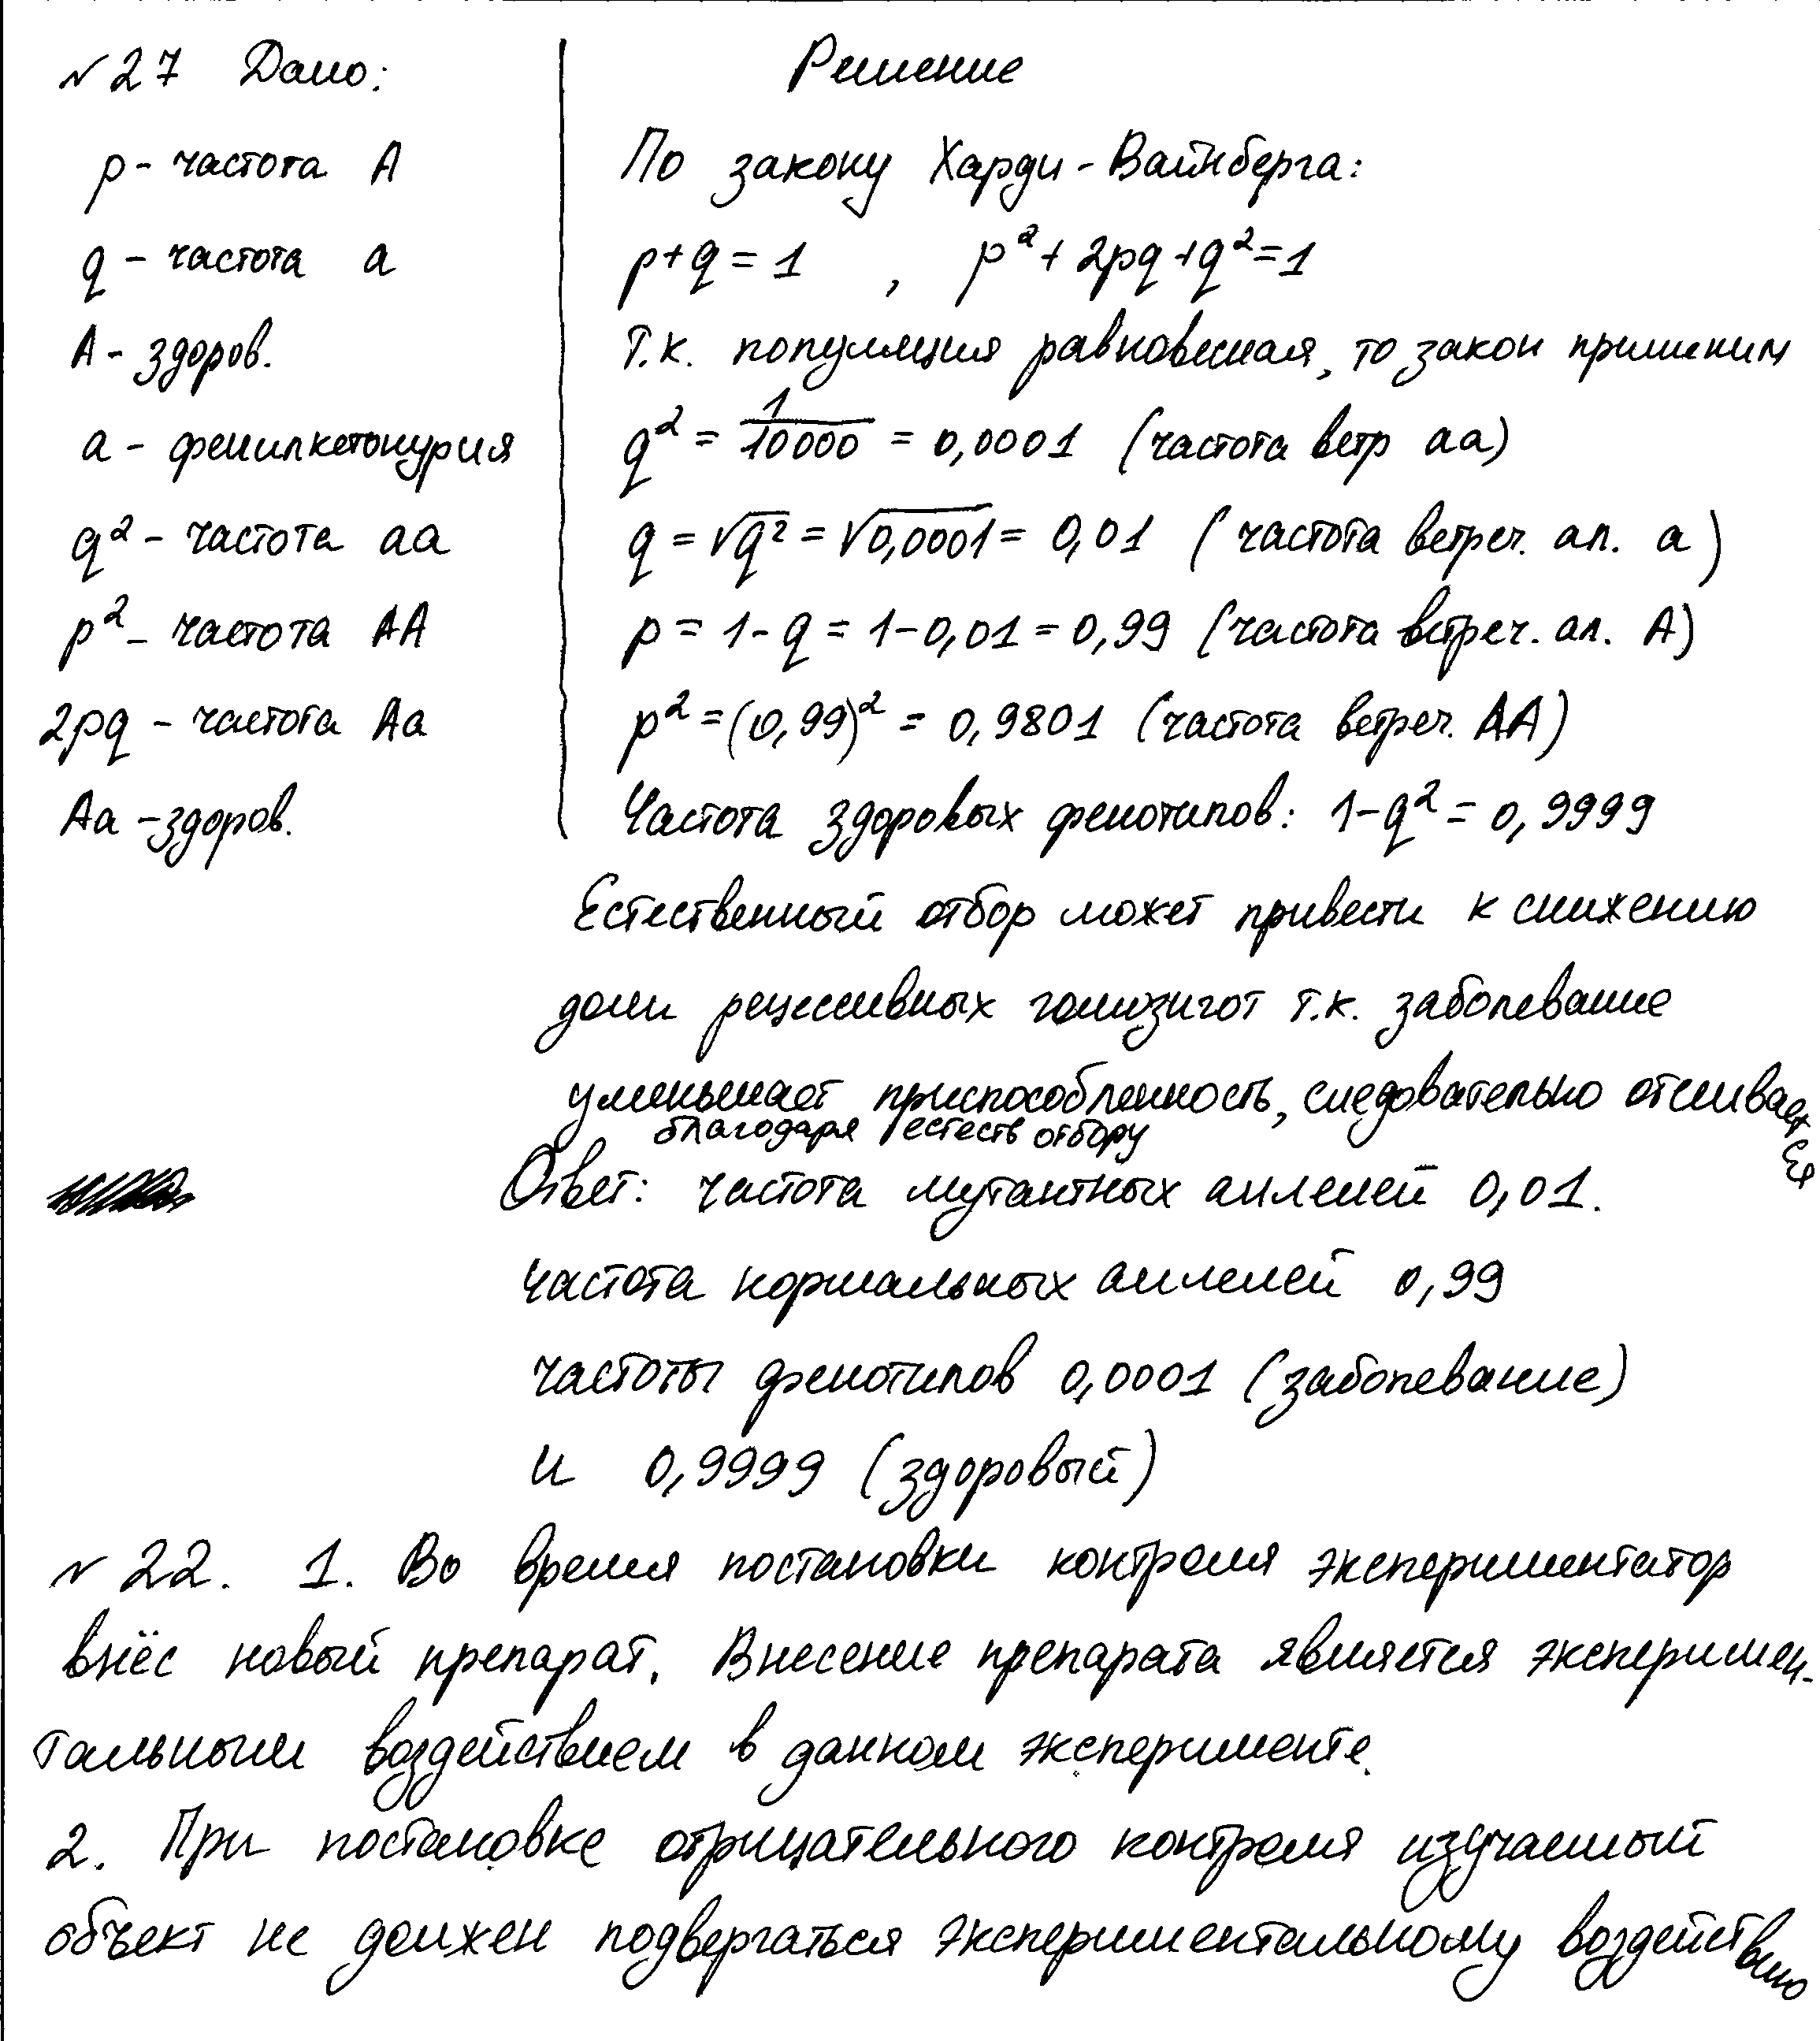 №27 Дано:
p - частота A
q - частота a
A - здоров.
a - фенилкетонурия
q² - частота aa
p² - частота AA
2pq - частота Aa
Aa - здоров.
Решение
По закону Харди-Вайнберга:
p+q=1 , p²+2pq+q²=1
Т.к. популяция равновесная, то закон применим
q² = 1/10000 = 0,0001 (частота встр aa)
q = √q² = √0,0001 = 0,01 (частота встреч. ал. a)
p = 1-q = 1-0,01 = 0,99 (частота встреч. ал. A)
p² = (0,99)² = 0,9801 (частота встреч. AA)
Частота здоровых фенотипов: 1-q² = 0,9999
Естественный отбор может привести к снижению
доли рецессивных гомозигот т.к. заболевание
уменьшает приспособленность, следовательно отсеивается
благодаря естеств отбору
Ответ: частота мутантных аллелей 0,01.
частота нормальных аллелей 0,99
частоты фенотипов 0,0001 (заболевание)
и 0,9999 (здоровый)
№22. 1. Во время постановки контроля экспериментатор
внёс новый препарат. Внесение препарата является эксперимен-
тальным воздействием в данном эксперименте.
2. При постановке отрицательного контроля изучаемый
объект не должен подвергаться экспериментальному воздействию